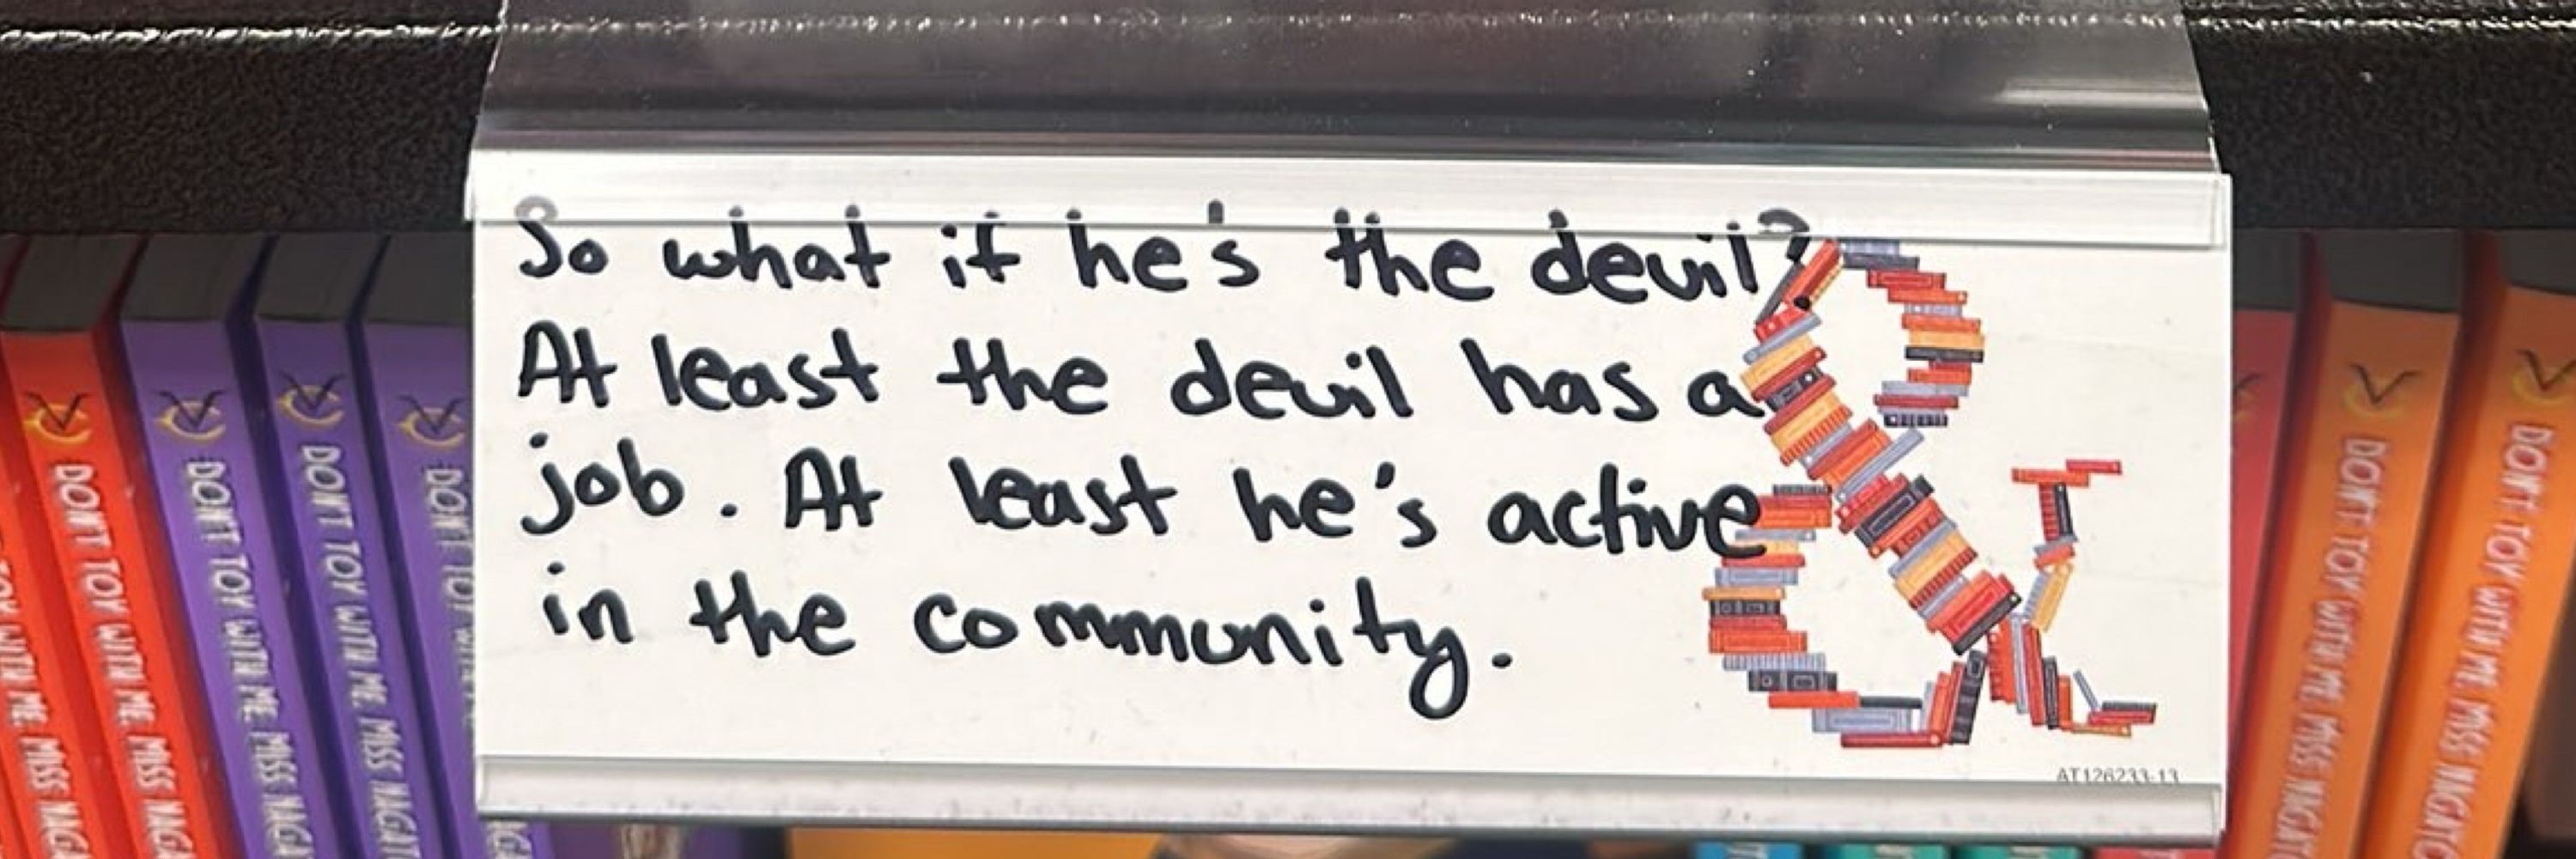 So what if he's the devil?
At least the devil has a
job. At least he's active
in the community.
&
AT126233-13
DON'T TOY WITH ME, MISS
DON'T TOY WITH ME, MISS
DON'T TOY WITH ME, MISS
DON'T TOY WITH ME, MISS
DON'T TOY WITH ME, MISS
DON'T TOY WITH ME, MISS